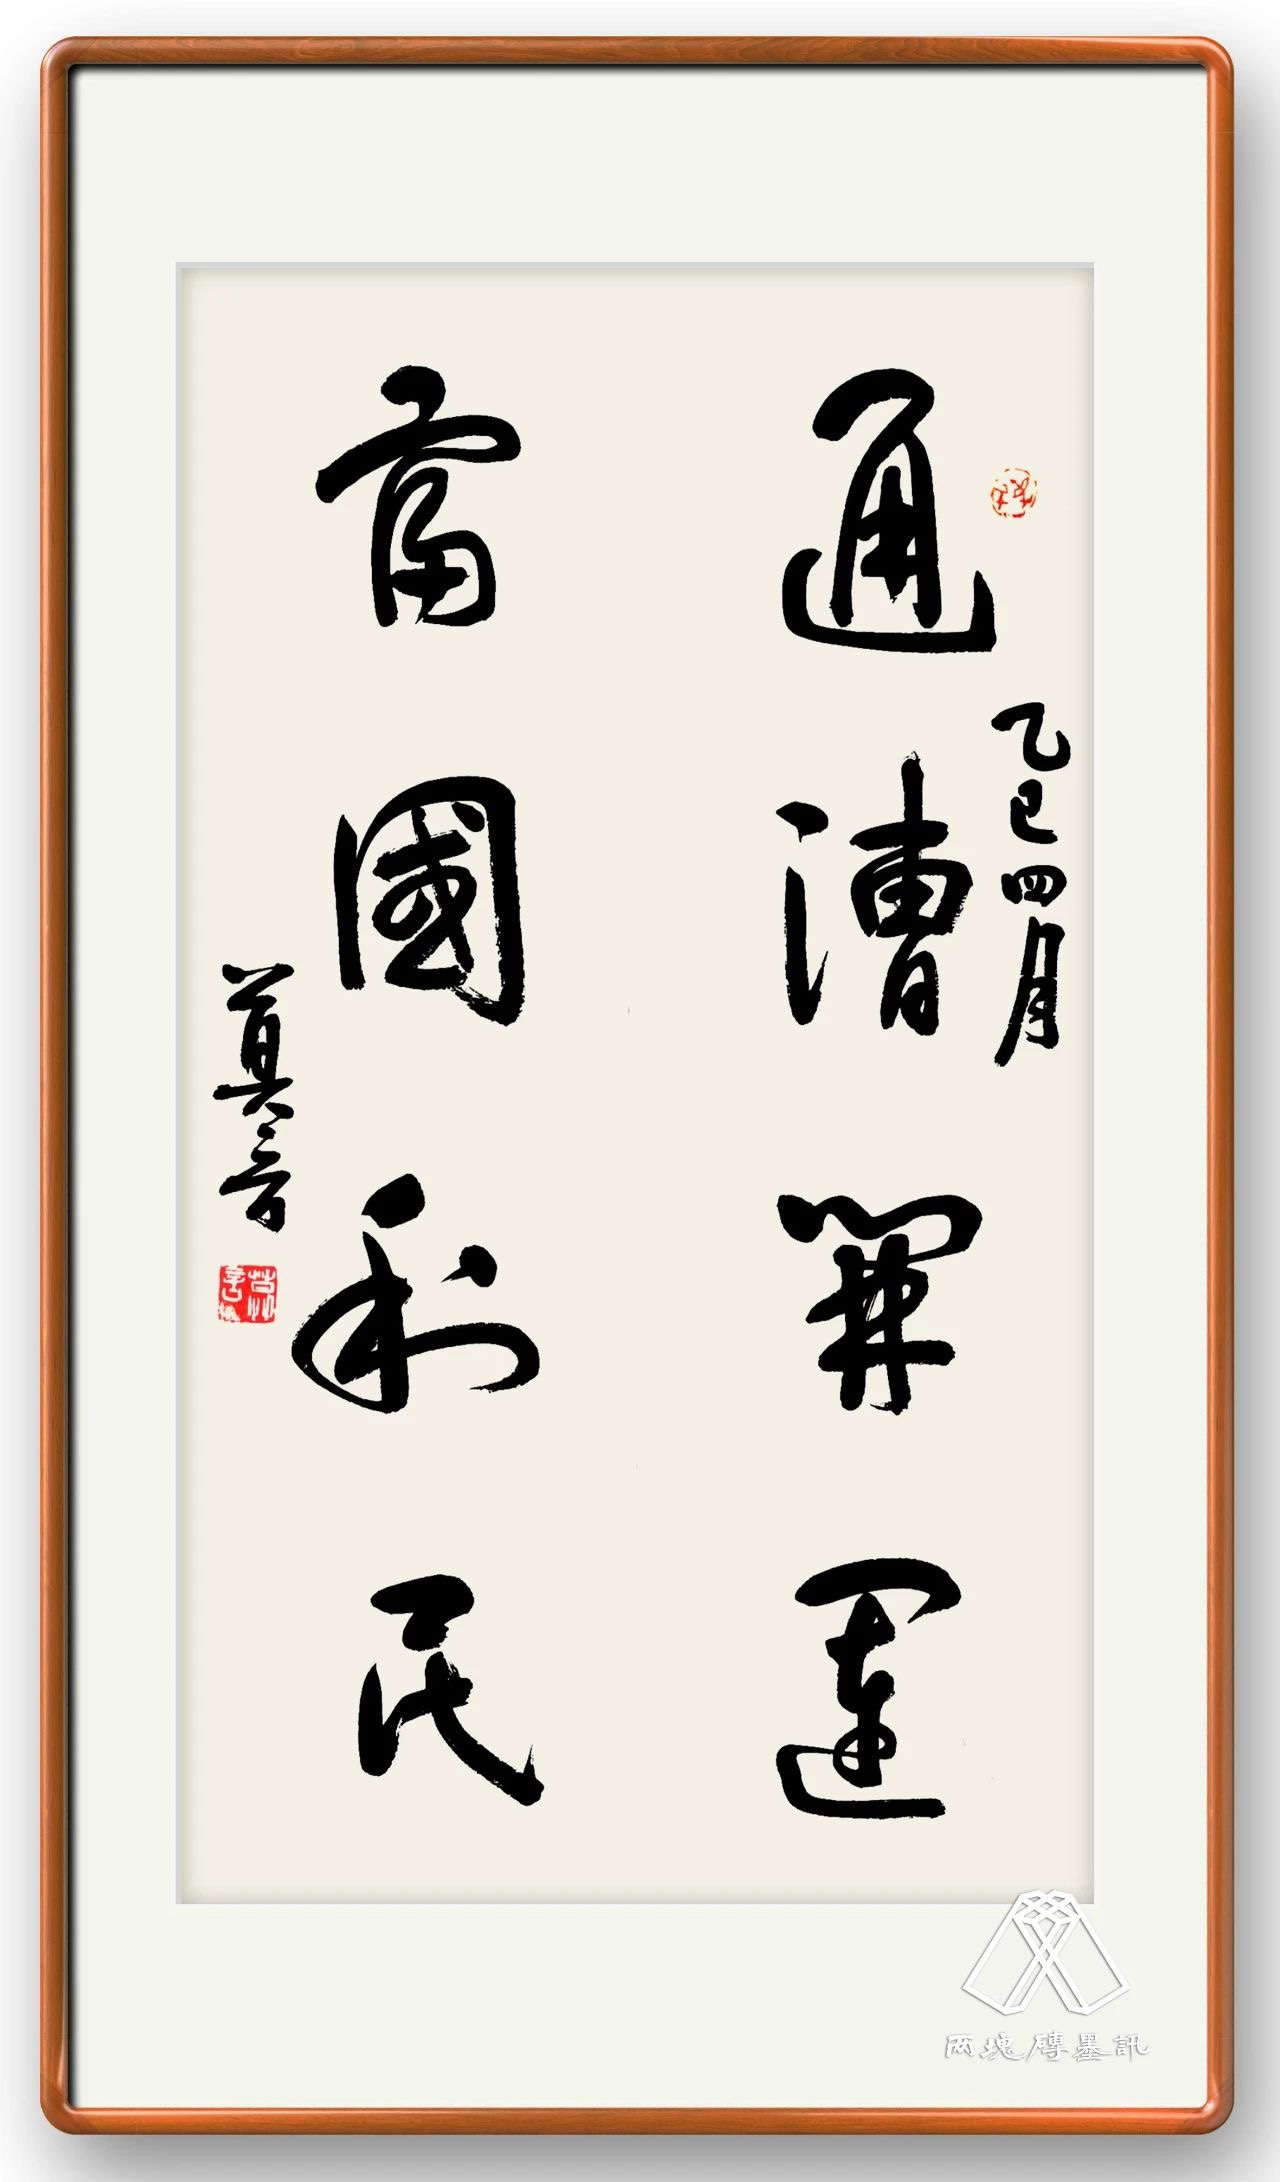 乙巳四月
通漕開運
富國利民
莫言
两塊磚墨訊